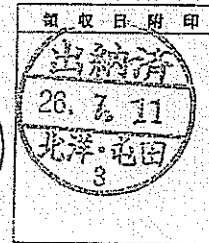 領収日附印
出納済
26. 7. 11
北洋・屯田
3